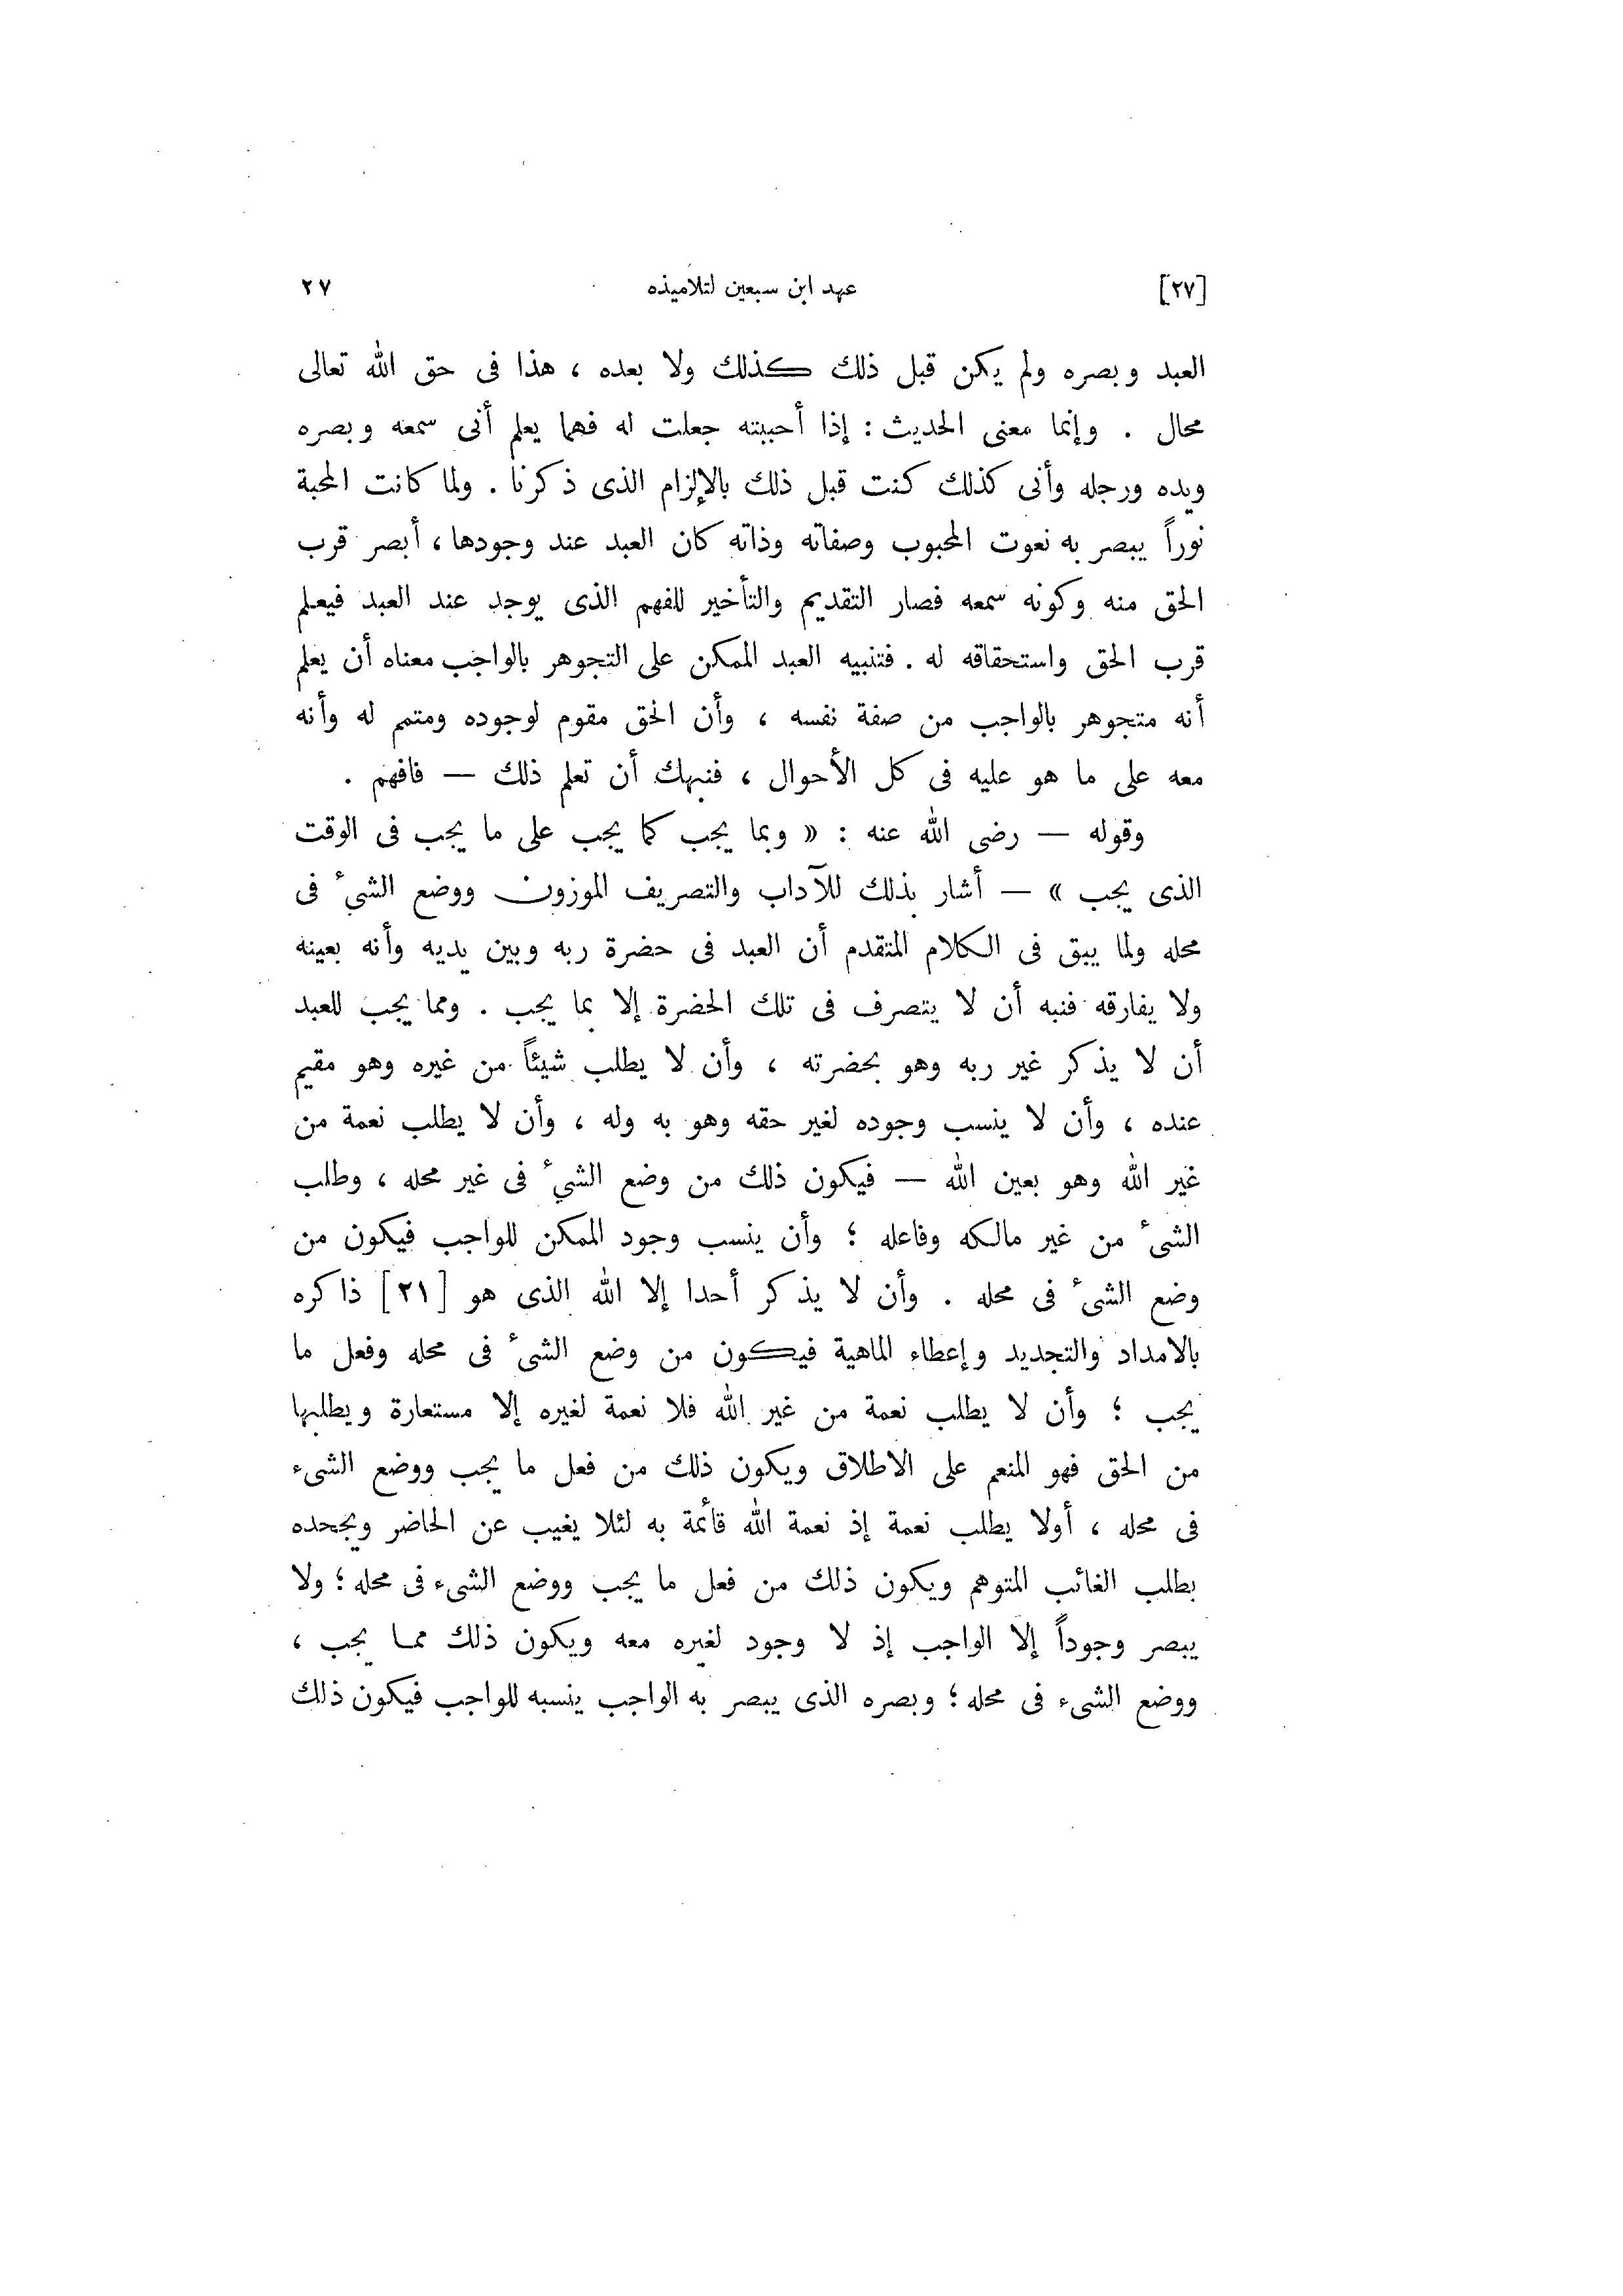 [٢٧] عهد ابن سبعين لتلاميذه ٢٧
العبد وبصره ولم يكن قبل ذلك كذلك ولا بعده ، هذا فى حق الله تعالى
محال . وإنما معنى الحديث : إذا أحببته جعلت له فهما يعلم أنى سمعه وبصره
ويده ورجله وأنى كذلك كنت قبل ذلك بالإلزام الذى ذكرنا . ولما كانت المحبة
نوراً يبصر به نعوت المحبوب وصفاته وذاته كان العبد عند وجودها ، أبصر قرب
الحق منه وكونه سمعه فصار التقديم والتأخير للفهم الذى يوجد عند العبد فيعلم
قرب الحق واستحقاقه له . فتنبيه العبد الممكن على التجوهر بالواجب معناه أن يعلم
أنه متجوهر بالواجب من صفة نفسه ، وأن الحق مقوم لوجوده ومتمم له وأنه
معه على ما هو عليه فى كل الأحوال ، فنبهك أن تعلم ذلك — فافهم .
وقوله — رضى الله عنه : « وبما يجب كما يجب على ما يجب فى الوقت
الذى يجب » — أشار بذلك للآداب والتصريف الموزون ووضع الشيء فى
محله ولما يبق فى الكلام المتقدم أن العبد فى حضرة ربه وبين يديه وأنه بعينه
ولا يفارقه فنبه أن لا يتصرف فى تلك الحضرة إلا بما يجب . ومما يجب للعبد
أن لا يذكر غير ربه وهو بحضرته ، وأن لا يطلب شيئاً من غيره وهو مقيم
عنده ، وأن لا ينسب وجوده لغير حقه وهو به وله ، وأن لا يطلب نعمة من
غير الله وهو بعين الله — فيكون ذلك من وضع الشيء فى غير محله ، وطلب
الشىء من غير مالكه وفاعله ؛ وأن ينسب وجود الممكن للواجب فيكون من
وضع الشىء فى محله . وأن لا يذكر أحدا إلا الله الذى هو [٢١] ذاكره
بالامداد والتجديد وإعطاء الماهية فيكون من وضع الشىء فى محله وفعل ما
يجب ؛ وأن لا يطلب نعمة من غير الله فلا نعمة لغيره إلا مستعارة ويطلبها
من الحق فهو المنعم على الاطلاق ويكون ذلك من فعل ما يجب ووضع الشىء
فى محله ، أولا يطلب نعمة إذ نعمة الله قائمة به لئلا يغيب عن الحاضر ويجحده
بطلب الغائب المتوهم ويكون ذلك من فعل ما يجب ووضع الشىء فى محله ؛ ولا
يبصر وجوداً إلا الواجب إذ لا وجود لغيره معه ويكون ذلك مما يجب ،
ووضع الشىء فى محله ؛ وبصره الذى يبصر به الواجب ينسبه للواجب فيكون ذلك